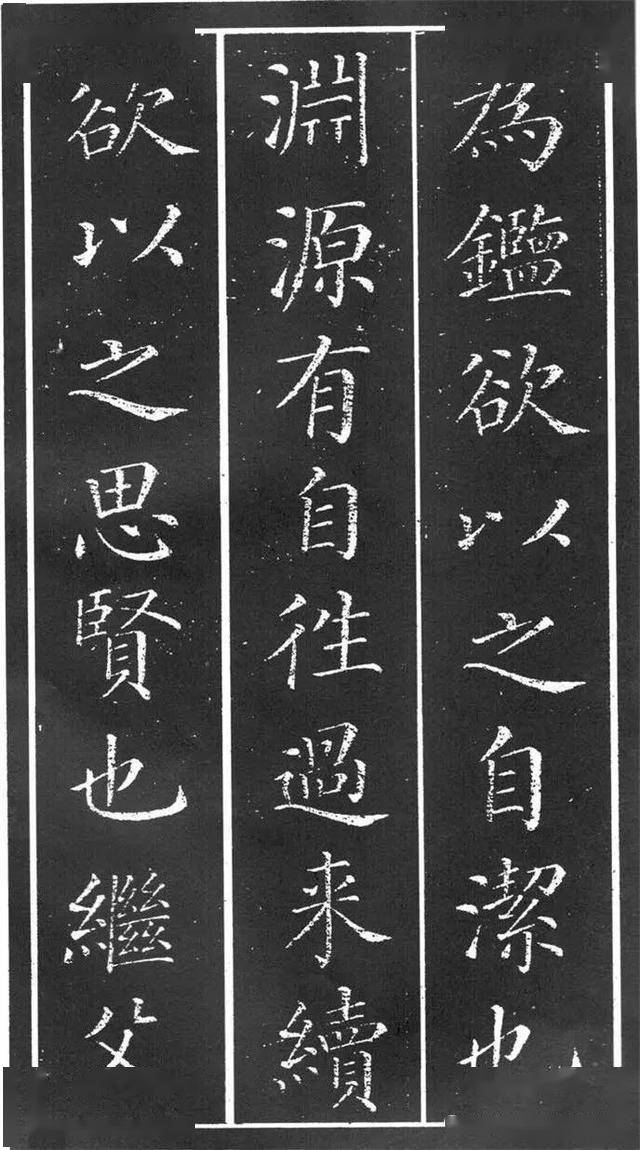 為鑑欲以之自潔也
淵源有自徃過来續
欲以之思賢也繼父